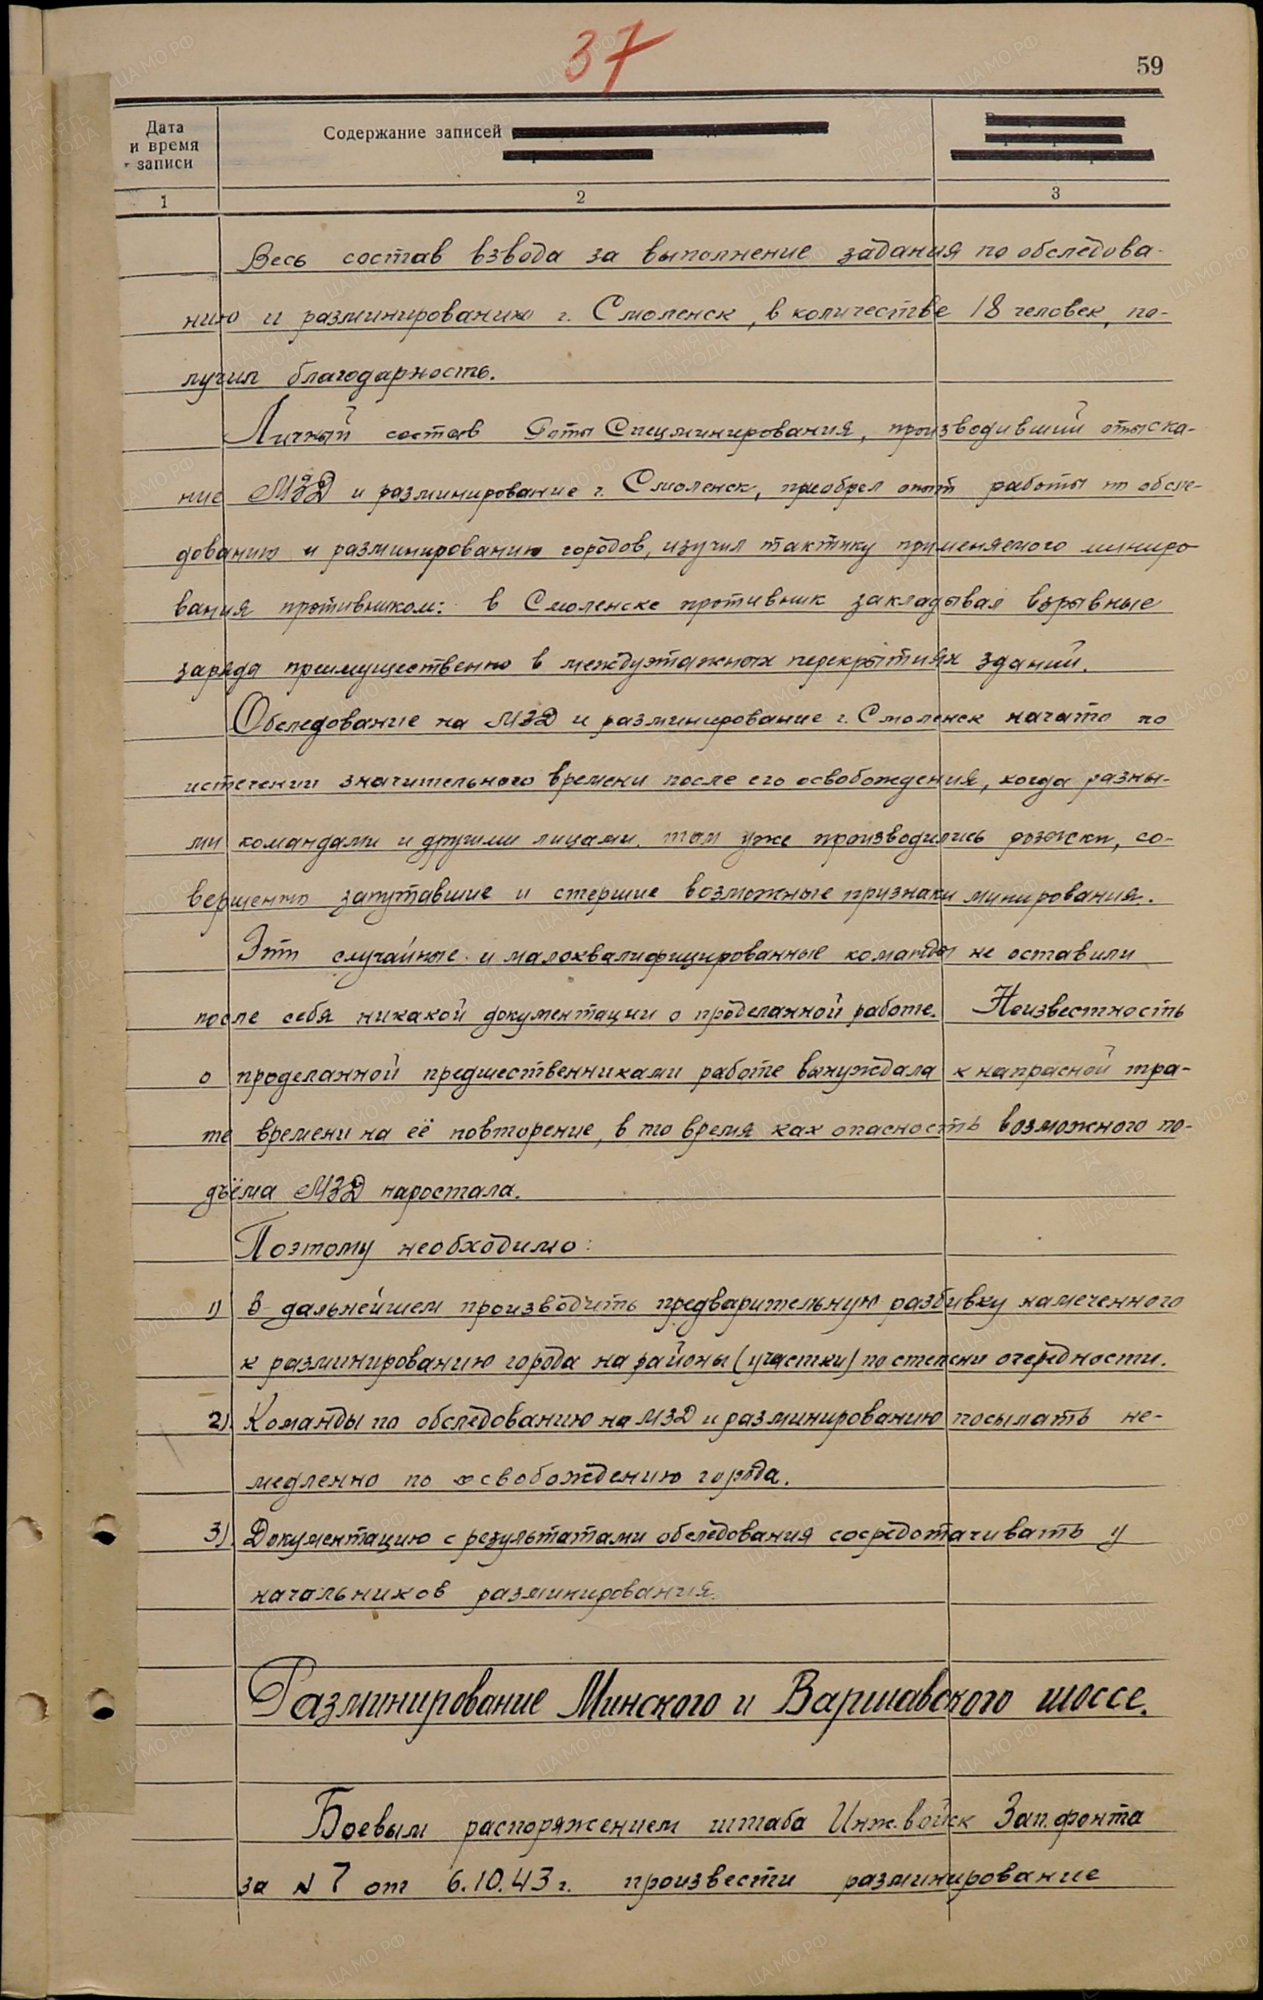 37
59
Дата
и время
записи
Содержание записей
1
2
3
Весь состав взвода за выполнение задания по обследова-
нию и разминированию г. Смоленск, в количестве 18 человек, по-
лучил благодарность.
Личный состав Роты Спецминирования, производивший отыска-
ние МЗД и разминирование г. Смоленск, приобрел опыт работы по обсле-
дованию и разминированию городов, изучил тактику применяемого миниро
вания противником: в Смоленске противник закладывал взрывные
заряда преимущественно в междуэтажных перекрытиях зданий.
Обследование на МЗД и разминирование г. Смоленск начато по
истечении значительного времени после его освобождения, когда разны-
ми командами и другими лицами там уже производились розыски, со-
вершенно запутавшие и стершие возможные признаки минирования.
Эти случайные и малоквалифицированные команды не оставили
после себя никакой документации о проделанной работе. Неизвестность
о проделанной предшественниками работе вынуждала к напрасной тра-
те времени на её повторение, в то время как опасность возможного по-
дъёма МЗД наростала.
Поэтому необходимо:
1) В дальнейшем производить предварительную разбивку намеченного
к разминированию города на районы (участки) по степени очередности.
2). Команды по обследованию на МЗД и разминированию посылать не-
медленно по освобождению города.
3). Документацию с результатами обследования сосредотачивать у
начальников разминирования.
Разминирование Минского и Варшавского шоссе.
Боевым распоряжением штаба Инж.войск Зап.фонта
за № 7 от 6.10.43 г. произвести разминирование